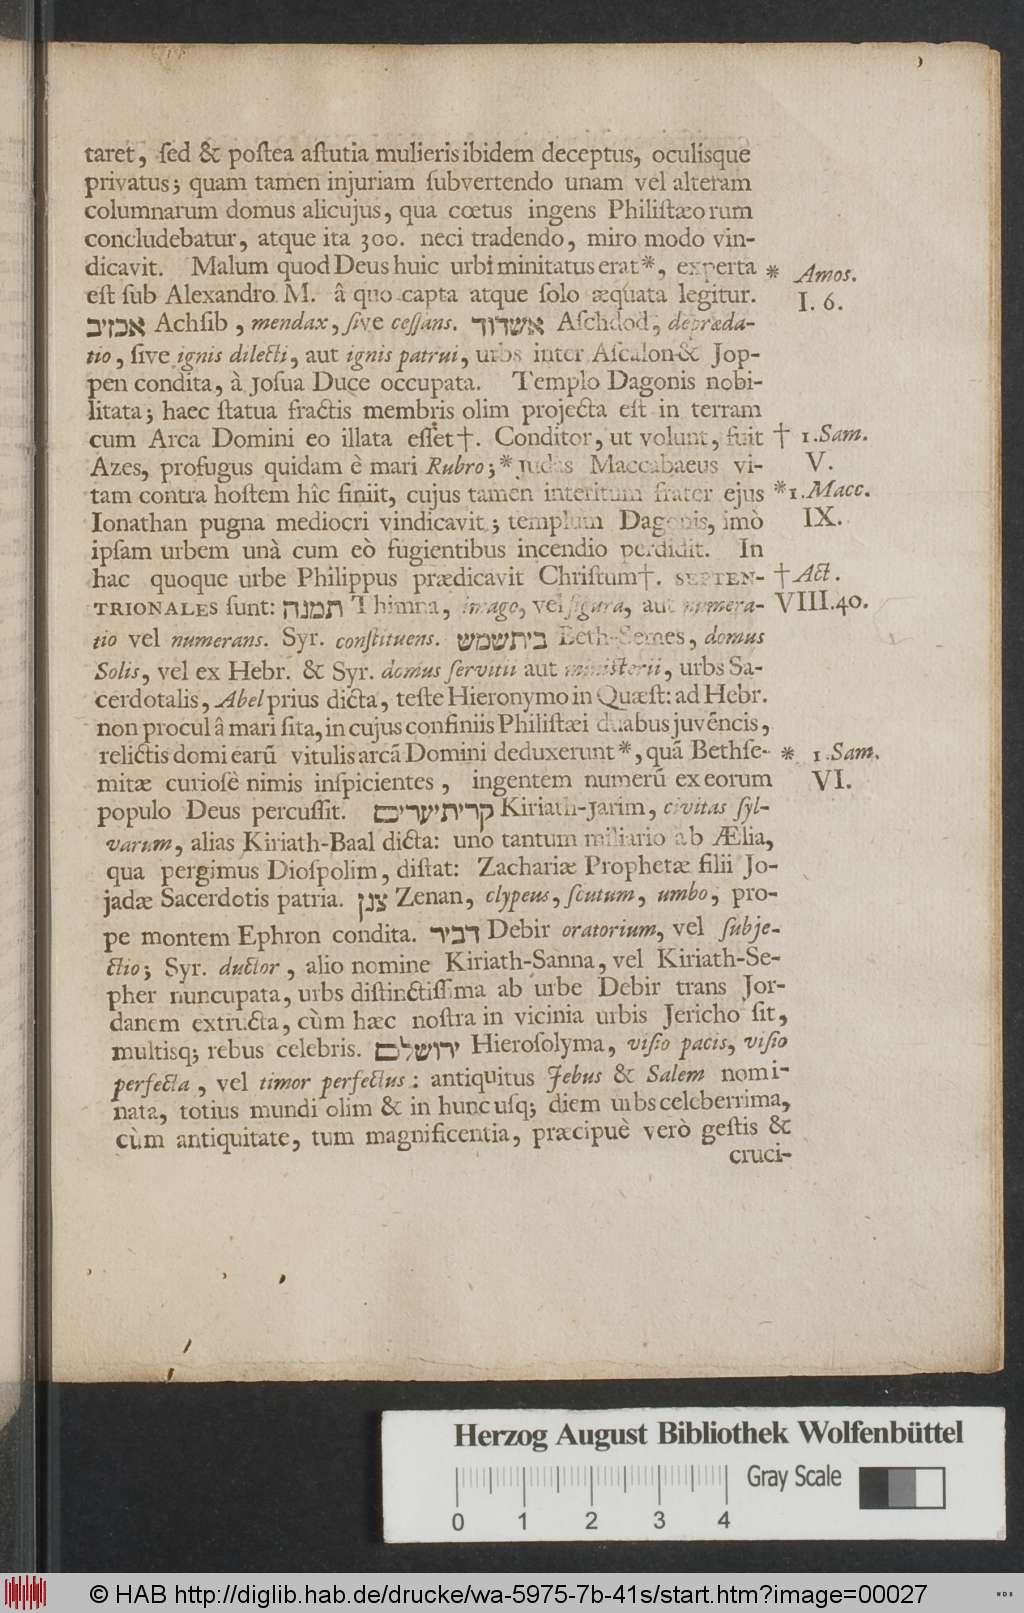 taret, ſed & poſtea aſtutia mulieris ibidem deceptus, oculisque
privatus; quam tamen injuriam ſubvertendo unam vel alteram
columnarum domus alicujus, qua cœtus ingens Philiſtæorum
concludebatur, atque ita 300. neci tradendo, miro modo vin-
dicavit. Malum quod Deus huic urbi minitatus erat*, experta
* Amos.
eſt ſub Alexandro M. â quo capta atque ſolo æquata legitur.
I. 6.
אכזיב Achſib, mendax, ſive ceſſans. אשדוד Aſchdod, depræda-
tio, ſive ignis dilecti, aut ignis patrui, urbs inter Aſcalon & Jop-
pen condita, à Joſua Duce occupata. Templo Dagonis nobi-
litata; haec ſtatua fractis membris olim projecta eſt in terram
cum Arca Domini eo illata eſſet†. Conditor, ut volunt, fuit
† 1. Sam.
Azes, profugus quidam è mari Rubro; * Judas Maccabaeus vi-
V.
tam contra hoſtem hîc finiit, cujus tamen interitum frater ejus
* 1. Macc.
Ionathan pugna mediocri vindicavit; templum Dagonis, imò
IX.
ipſam urbem unà cum eò fugientibus incendio perdidit. In
hac quoque urbe Philippus prædicavit Chriſtum†. SEPTEN-
† Act.
TRIONALES ſunt: תמנה Thimna, imago, vel figura, aut numera-
VIII. 40.
tio vel numerans. Syr. conſtituens. ביתשמש Beth-Semes, domus
Solis, vel ex Hebr. & Syr. domus ſervitii aut miniſterii, urbs Sa-
cerdotalis, Abel prius dicta, teſte Hieronymo in Quæſt: ad Hebr.
non procul â mari ſita, in cujus confiniis Philiſtæi duabus juvēncis,
relictis domi earũ vitulis arcã Domini deduxerunt*, quã Bethſe-
* 1. Sam.
mitæ curioſè nimis inſpicientes, ingentem numerũ ex eorum
VI.
populo Deus percuſſit. קריתיערים Kiriath-Jarim, civitas ſyl-
varum, alias Kiriath-Baal dicta: uno tantum miliario ab Ælia,
qua pergimus Dioſpolim, diſtat: Zachariæ Prophetæ filii Jo-
jadæ Sacerdotis patria. צנן Zenan, clypeus, ſcutum, umbo, pro-
pe montem Ephron condita. דביר Debir oratorium, vel ſubje-
ctio; Syr. ductor, alio nomine Kiriath-Sanna, vel Kiriath-Se-
pher nuncupata, urbs diſtinctiſſima ab urbe Debir trans Jor-
danem extructa, cùm hæc noſtra in vicinia urbis Jericho ſit,
multisq; rebus celebris. ירושלם Hieroſolyma, viſio pacis, viſio
perfecta, vel timor perfectus: antiquitus Jebus & Salem nomi-
nata, totius mundi olim & in hunc uſq; diem urbs celeberrima,
cùm antiquitate, tum magnificentia, præcipuè verò geſtis &
cruci-
Herzog August Bibliothek Wolfenbüttel
Gray Scale
0 1 2 3 4
© HAB http://diglib.hab.de/drucke/wa-5975-7b-41s/start.htm?image=00027